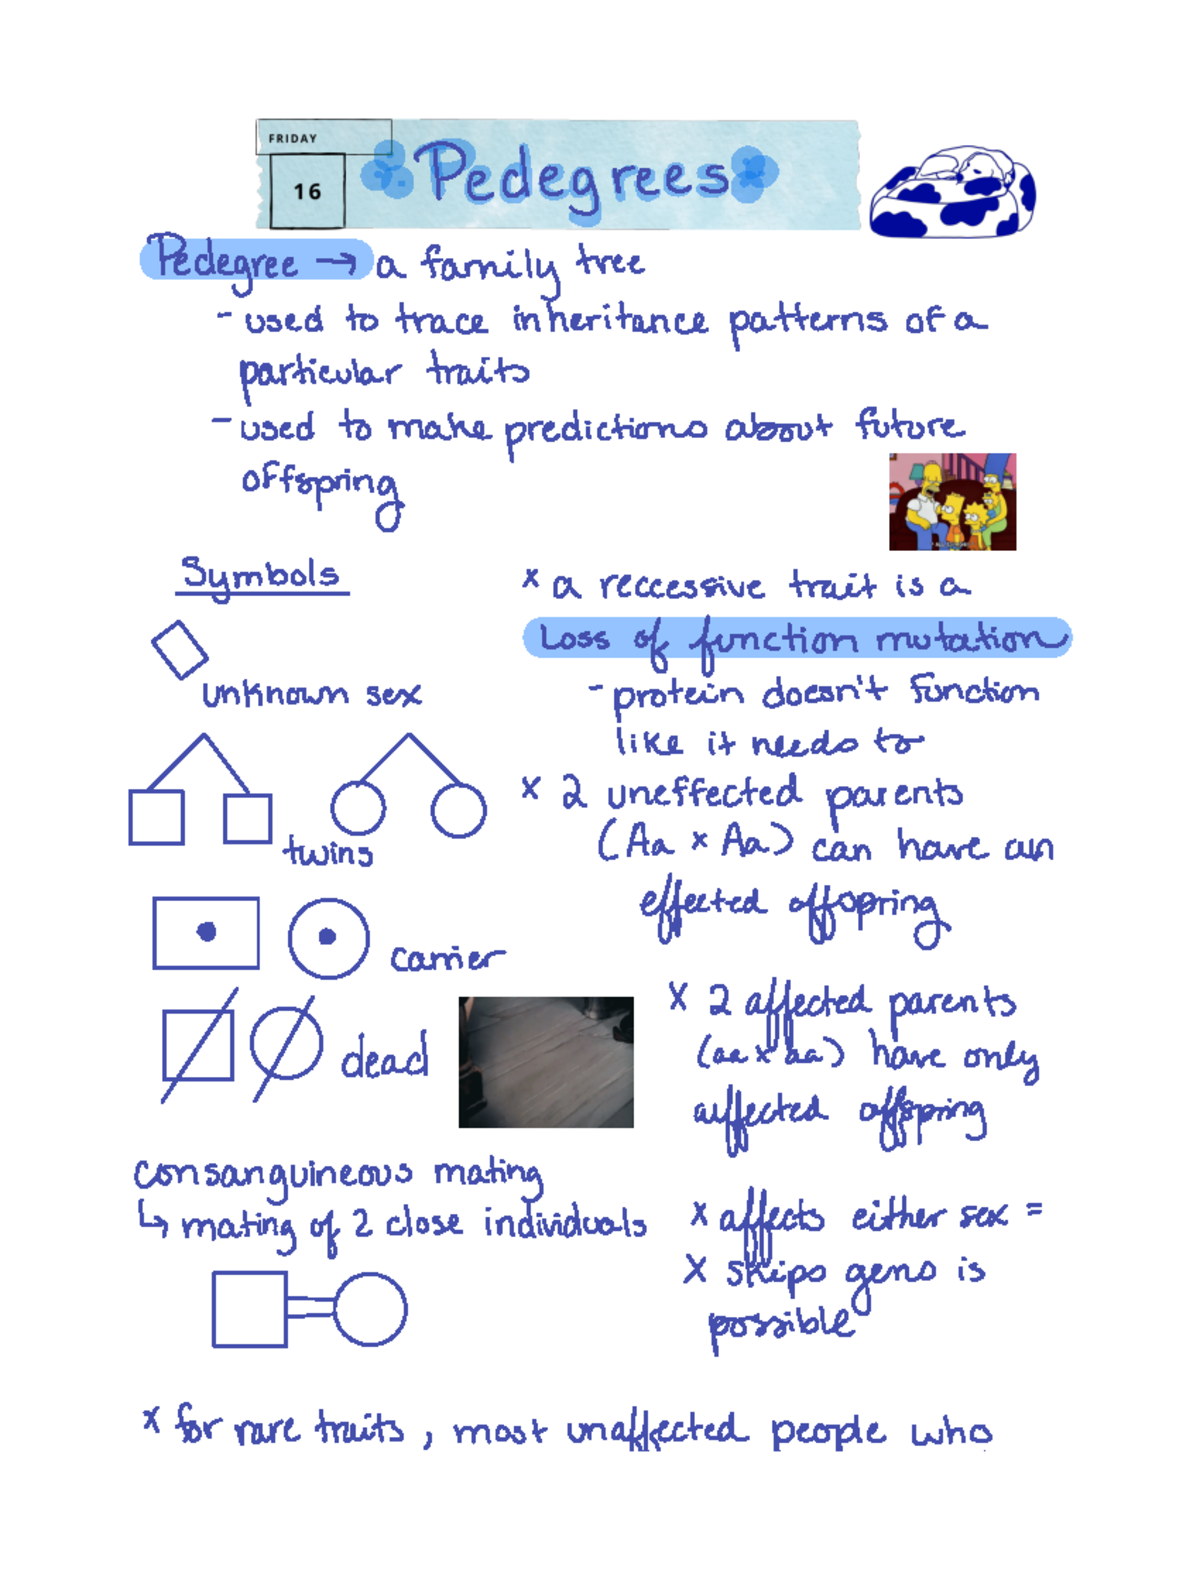 FRIDAY
16
Pedegrees
Pedegree → a family tree
- used to trace inheritance patterns of a
particular traits
- used to make predictions about future
offspring
Symbols
unknown sex
twins
carrier
dead
consanguineous mating
↳ mating of 2 close individuals
x a reccessive trait is a
Loss of function mutation
- protein doesn't function
like it needs to
x 2 uneffected parents
(Aa x Aa) can have an
effected offspring
x 2 affected parents
(aa x aa) have only
affected offspring
x affects either sex =
x skips gens is
possible
x for rare traits, most unaffected people who